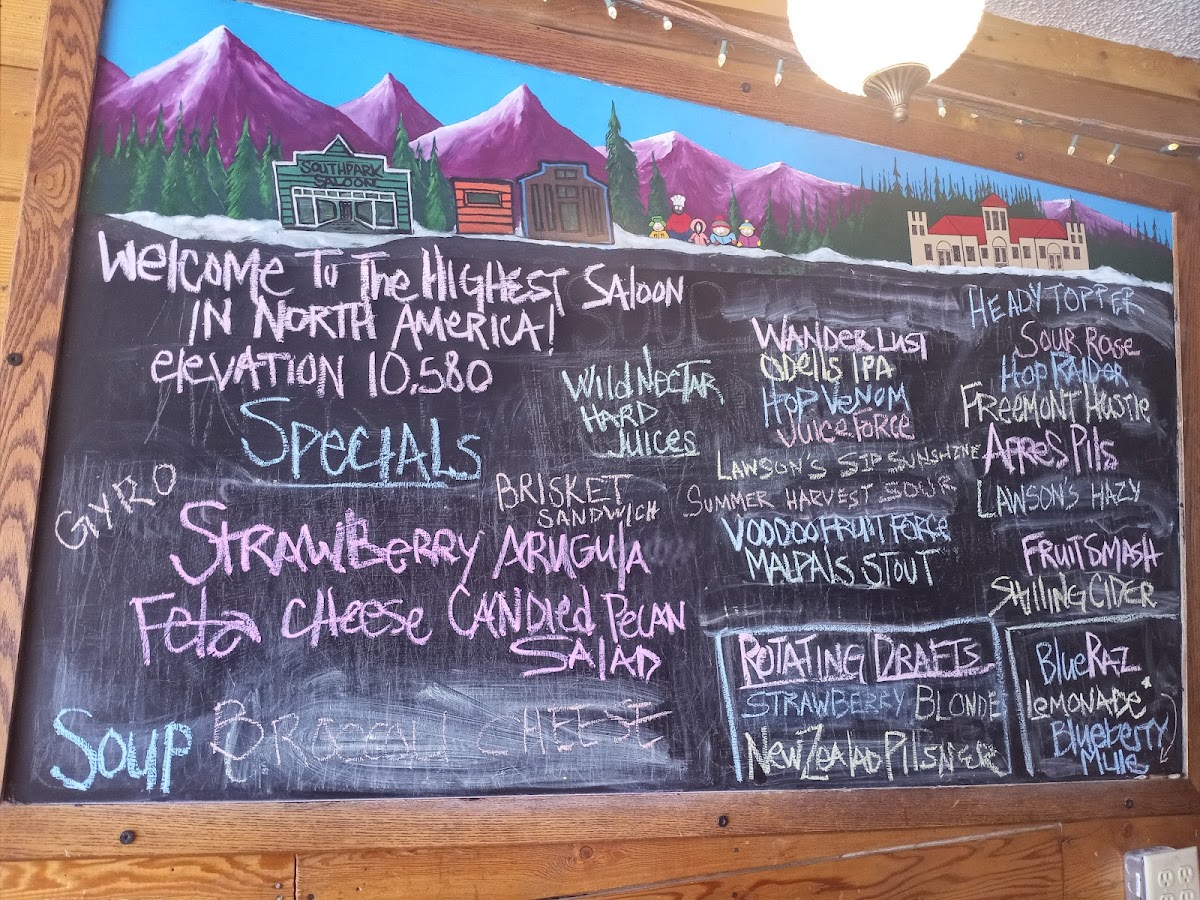 SOUTHPARK
SALOON
WELCOME TO THE HIGHEST SALOON
IN NORTH AMERICA!
elevation 10,580
SPECIALS
GYRO
BRISKET
SANDWICH
STRAWBERRY ARUGULA
Feta CHEESE CANDIED PECAN
SALAD
SOUP
CHEESE
WILD NECTAR
HARD
JUICES
WANDER LUST
ODELLS IPA
HOP VENOM
JUICE FORCE
LAWSON'S SIP SUNSHINE
SUMMER HARVEST SOUR
VOODOO FRUIT FORCE
MALPAIS STOUT
HEADY TOPPER
SOUR ROSE
HOP RAIDER
FREEMONT HUSTLE
APRES PILS
LAWSON'S HAZY
FRUIT SMASH
SHILLING CIDER
ROTATING DRAFTS
STRAWBERRY BLONDE
NEW ZEALAD PILSNER
BLUE RAZ
LEMONADE
BLUEBERRY
MULE